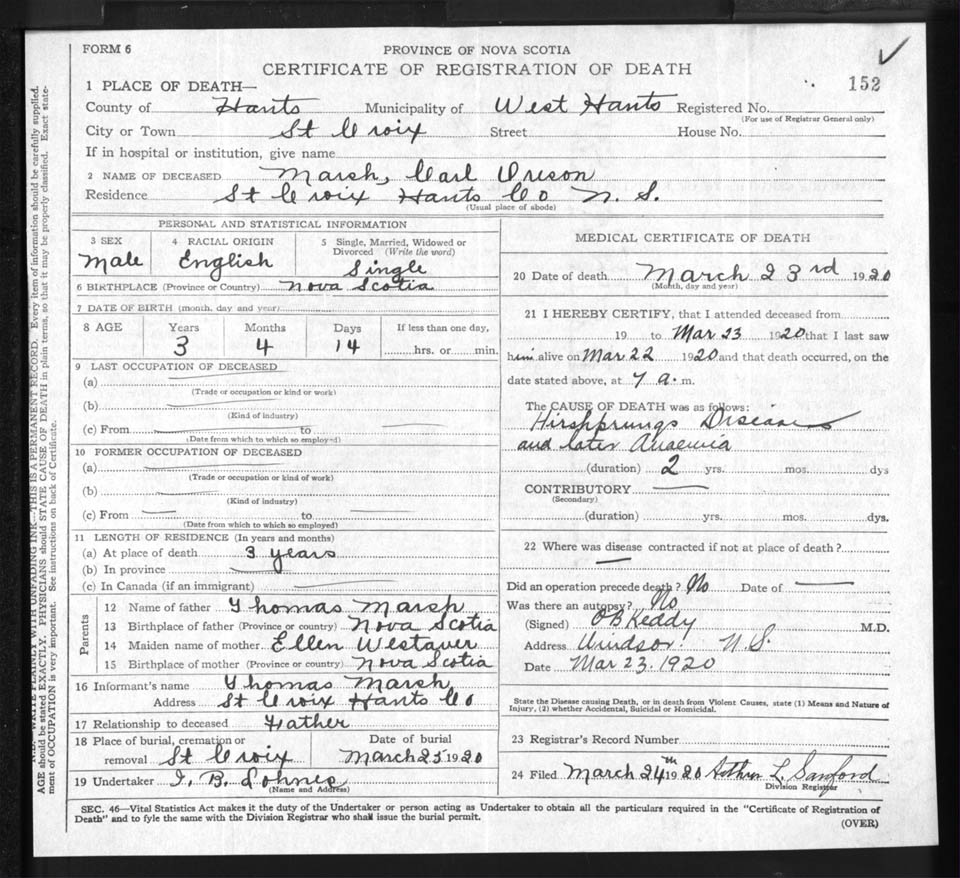 FORM 6
PROVINCE OF NOVA SCOTIA
CERTIFICATE OF REGISTRATION OF DEATH
152
1 PLACE OF DEATH—
County of Hants Municipality of West Hants Registered No.
(For use of Registrar General only)
City or Town St Croix Street House No.
If in hospital or institution, give name
2 NAME OF DECEASED Marsh, Carl Oreson
Residence St Croix Hants Co N. S.
(Usual place of abode)
PERSONAL AND STATISTICAL INFORMATION
3 SEX 4 RACIAL ORIGIN 5 Single, Married, Widowed or
Divorced (Write the word)
Male English Single
6 BIRTHPLACE (Province or Country) Nova Scotia
7 DATE OF BIRTH (month, day and year)
8 AGE Years Months Days If less than one day,
3 4 14 hrs. or min.
9 LAST OCCUPATION OF DECEASED
(a)
(Trade or occupation or kind or work)
(b)
(Kind of industry)
(c) From to
(Date from which to which so employed)
10 FORMER OCCUPATION OF DECEASED
(a)
(Trade or occupation or kind of work)
(b)
(Kind of industry)
(c) From to
(Date from which to which so employed)
11 LENGTH OF RESIDENCE (In years and months)
(a) At place of death 3 years
(b) In province
(c) In Canada (if an immigrant)
Parents
12 Name of father Thomas Marsh
13 Birthplace of father (Province or country) Nova Scotia
14 Maiden name of mother Ellen Westaver
15 Birthplace of mother (Province or country) Nova Scotia
16 Informant's name Thomas Marsh
Address St Croix Hants Co
17 Relationship to deceased Father
18 Place of burial, cremation or Date of burial
removal St Croix March 25 1920
19 Undertaker I. B. Lohnes
(Name and Address)
MEDICAL CERTIFICATE OF DEATH
20 Date of death March 23rd 1920
(Month, day and year)
21 I HEREBY CERTIFY, that I attended deceased from
19 to Mar 23 1920 that I last saw
him alive on Mar 22 1920 and that death occurred, on the
date stated above, at 7 a. m.
The CAUSE OF DEATH was as follows:
Hirshprungs Disease
and later Anaemia
(duration) 2 yrs. mos. dys
CONTRIBUTORY
(Secondary)
(duration) yrs. mos. dys.
22 Where was disease contracted if not at place of death?
Did an operation precede death? No Date of
Was there an autopsy? No
(Signed) O B Keddy M.D.
Address Windsor N S.
Date Mar 23. 1920
State the Disease causing Death, or in death from Violent Causes, state (1) Means and Nature of
Injury, (2) whether Accidental, Suicidal or Homicidal.
23 Registrar's Record Number
24 Filed March 24th 1920 Arthur L. Sanford
Division Registrar
SEC. 46—Vital Statistics Act makes it the duty of the Undertaker or person acting as Undertaker to obtain all the particulars required in the "Certificate of Registration of
Death" and to fyle the same with the Division Registrar who shall issue the burial permit.
(OVER)
WRITE PLAINLY WITH UNFADING INK—THIS IS A PERMANENT RECORD. Every item of information should be carefully supplied.
AGE should be stated EXACTLY. PHYSICIANS should STATE CAUSE OF DEATH in plain terms, so that it may be properly classified. Exact state-
ment of OCCUPATION is very important. See instructions on back of Certificate.